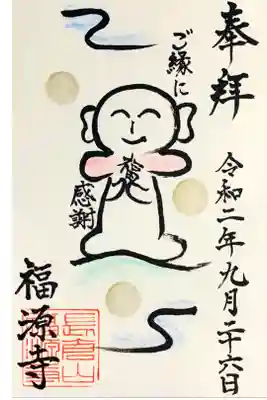 奉拝
令和二年九月二十六日
ご縁に
感謝
福源寺
長倉山